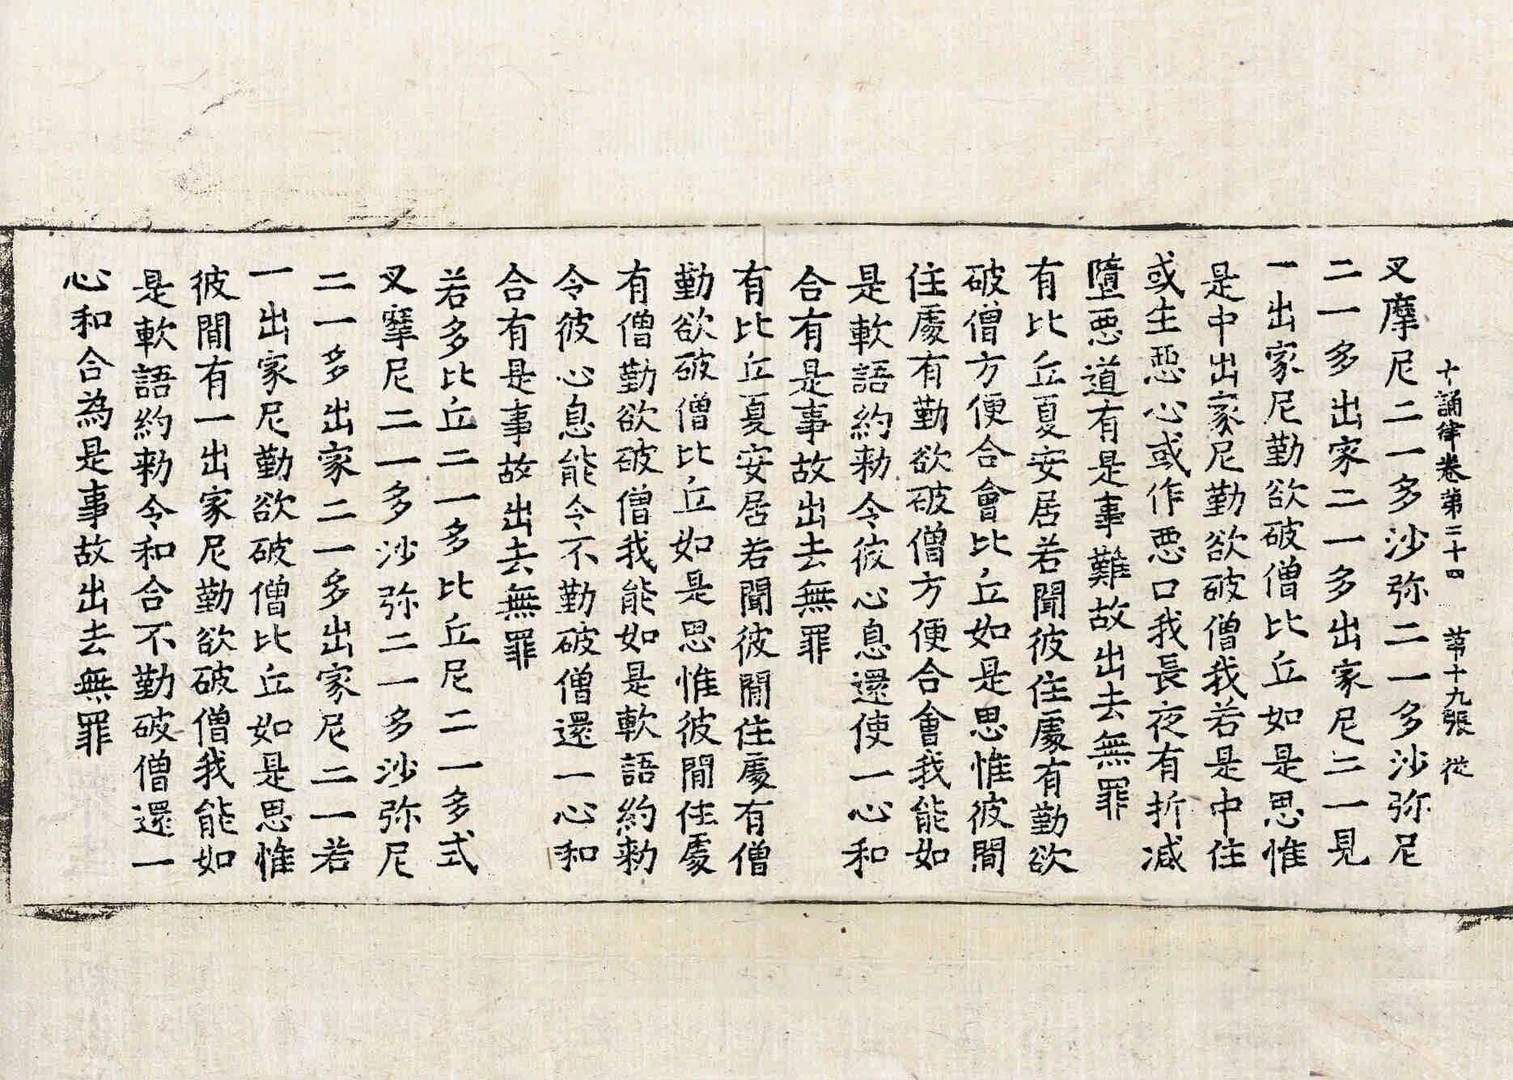 十誦律卷第二十四 第十九張 從
叉摩尼二一多沙弥二一多沙弥尼
二一多出家二一多出家尼二一見
一出家尼勤欲破僧比丘如是思惟
是中出家尼勤欲破僧我若是中住
或生惡心或作惡口我長夜有折减
墮惡道有是事難故出去無罪
有比丘夏安居若聞彼住處有勤欲
破僧方便合會比丘如是思惟彼間
住處有勤欲破僧方便合會我能如
是軟語約勑令彼心息還使一心和
合有是事故出去無罪
有比丘夏安居若聞彼間住處有僧
勤欲破僧比丘如是思惟彼間住處
有僧勤欲破僧我能如是軟語約勑
令彼心息能令不勤破僧還一心和
合有是事故出去無罪
若多比丘二一多比丘尼二一多式
叉摩尼二一多沙弥二一多沙弥尼
二一多出家二一多出家尼二一若
一出家尼勤欲破僧比丘如是思惟
彼間有一出家尼勤欲破僧我能如
是軟語約勑令和合不勤破僧還一
心和合為是事故出去無罪